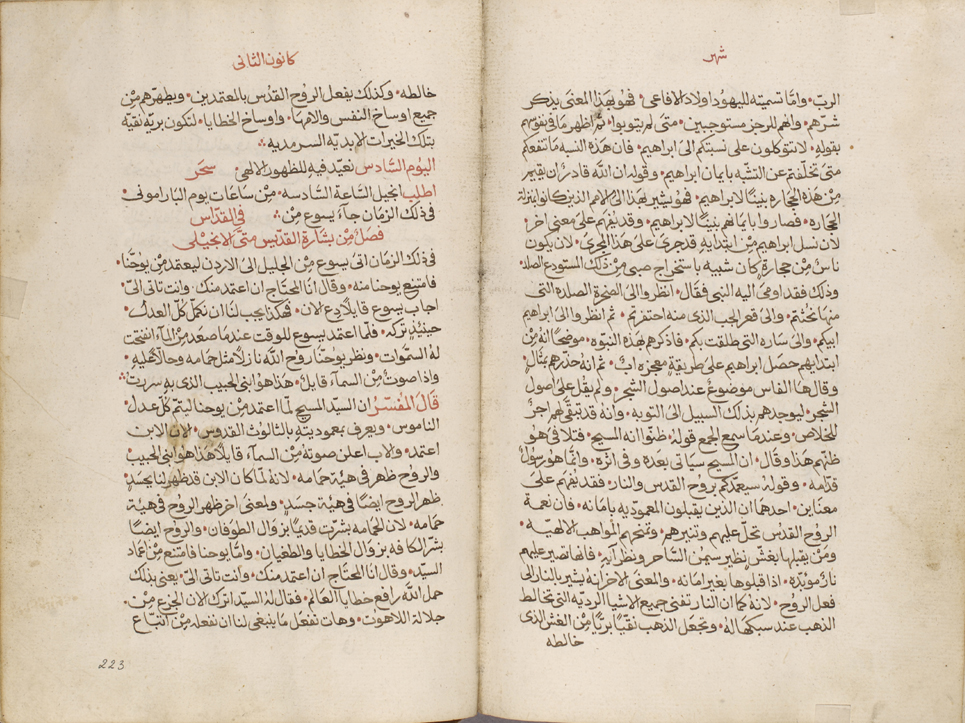 شهر
الربّ• وامّا تسميته لليهود اولاد الافاعي• فهو بهذا المعنى يذكر
شرّهم• وانهم للرجز مستوجبين• متى لم يتوبوا• ثم اظهر ما في نفوسهم
بقوله• لا تتوكلون على نسبتكم الى ابراهيم• فان هذه النسبه ما تنفعكم
متى تخلّفتم عن التشبّه بايمان ابراهيم• وقوله ان الله قادر ان يقيم
من هذه الحجاره بنينًا لابراهيم• فهو يشير بهذا الى الامم الذين كانوا بمنزلة
الحجاره• فصاروا بايمانهم بنينًا لابراهيم• وقد يفهم على معنى اخر•
لان نسل ابراهيم من ابتدايه قد جرى على هذا المجرى• لان يكون
ناسٌ من حجارةٍ كان شبيه باستخراج صبي من ذلك المستودع الصلد•
وذلك فقد اومى اليه النبي فقال• انظروا الى الصخرة الصلده التي
منها نحتتم• والى قعر الجب الذي منه احتفرتم• ثم انظروا الى ابراهيم
ابيكم• والى ساره التي طلقت بكم• فاذكرهم بهذه النبوه• موضحًا انه من
ابتدايهم حصل ابراهيم على طريقةٍ معجزه ابٌ• ثم انه حذّرهم بمثالٍ
وقال ها الفاس موضوعٌ عند اصول الشجر• ولم يقل على اصول
الشجر• ليوجدهم بذلك السبيل الى التوبه• وانه قد تبقّى لهم اجزٌ
للخلاص• وعندما سمع الجمع قوله• ظنّوا انه المسيح• فتلافى هو
ظنّهم هذا وقال• ان المسيح سياتي بعده وفي اثره• وانما هو رسولٌ
قدّامه• وقوله سيعمّدكم بروح القدس والنار• فقد يفهم على
معنيين• احدهما ان الذين يقبلون المعموديه بامانه• فان نعمة
الروح القدس تحلّ عليهم وتنيرهم• وتمنحهم المواهب الالهيه•
ومن يقبلها بغشٍ نظير سيمن الساحر ونظرآيه• فانها تصير عليهم
نارٌ موبّده• اذا قبلوها بغير امانه• والمعنى الاخر انه يشير بالنار الى
فعل الروح• لانه كما ان النار تفني جميع الاشيا الرديّه التي تخالط
الذهب عند سبكها له• وتجعل الذهب نقيًا بريًا من الغش الذي
خالطه
كانون الثاني
خالطه• وكذلك يفعل الروح القدس بالمعتمدين• ويطهّرهم من
جميع اوساخ النفس والامها• واوساخ الخطايا• لتكون بريّه نقيّه
بتلك الخيرات الابديّه السرمديه•
اليوم السادس نعيّد فيه للظهور الالهي سحَر
اطلب انجيل الساعة السادسه• من ساعات يوم البارامونى•
في ذلك الزمان جآء يسوع من• في القدّاس
فصلٌ من بشارة القديس متّى الانجيلي
في ذلك الزمان اتى يسوع من الجليل الى الاردن ليعتمد من يوحنّا•
فامتنع يوحنا منه• وقال انا المحتاج ان اعتمد منك• وانت تاتي اليّ•
اجاب يسوع قايلاً دع لان• فهكذا يجب لنا ان نكمّل كلّ العدل•
حينيذٍ تركه• فلما اعتمد يسوع للوقت عندما صعد من المآء انفتحت
له السموات• ونظر يوحنّا روح الله نازلاً مثل حمامه وحالاً عليه•
واذا صوتٌ من السمآء قايلٌ• هذا هو ابني الحبيب الذي به سررتُ•
قال المفسّر ان السيد المسيح لمّا اعتمد من يوحنا ليتمّ كل عدل•
الناموس• ويعرف بعموديته بالثالوث القدوس• لان الابن
اعتمد• والاب اعلن صوته من السمآء قايلاً هذا هو ابني الحبيب•
والروح ظهر في هيّة حمامه• لانه لمّا كان الابن قد ظهر لنا بجسدٍ•
ظهر الروح ايضًا في هيّة جسدٍ• ولمعنى اخر ظهر الروح في هيّة
حمامه• لان الحمامه بشّرت قديمًا بزوال الطوفان• والروح ايضًا
بشّر الكافه بزوال الخطايا والطغيان• وامّا يوحنا فامتنع من اعماد
السيّد• وقال انا المحتاج ان اعتمد منك• وانت تاتي اليّ• يعني بذلك
حمل الله رافع خطايا العالم• فقال له السيّد اترك الان الجزع من
جلالة اللاهوت• وهات نفعل ما ينبغي لنا ان نفعله من اتباع
223